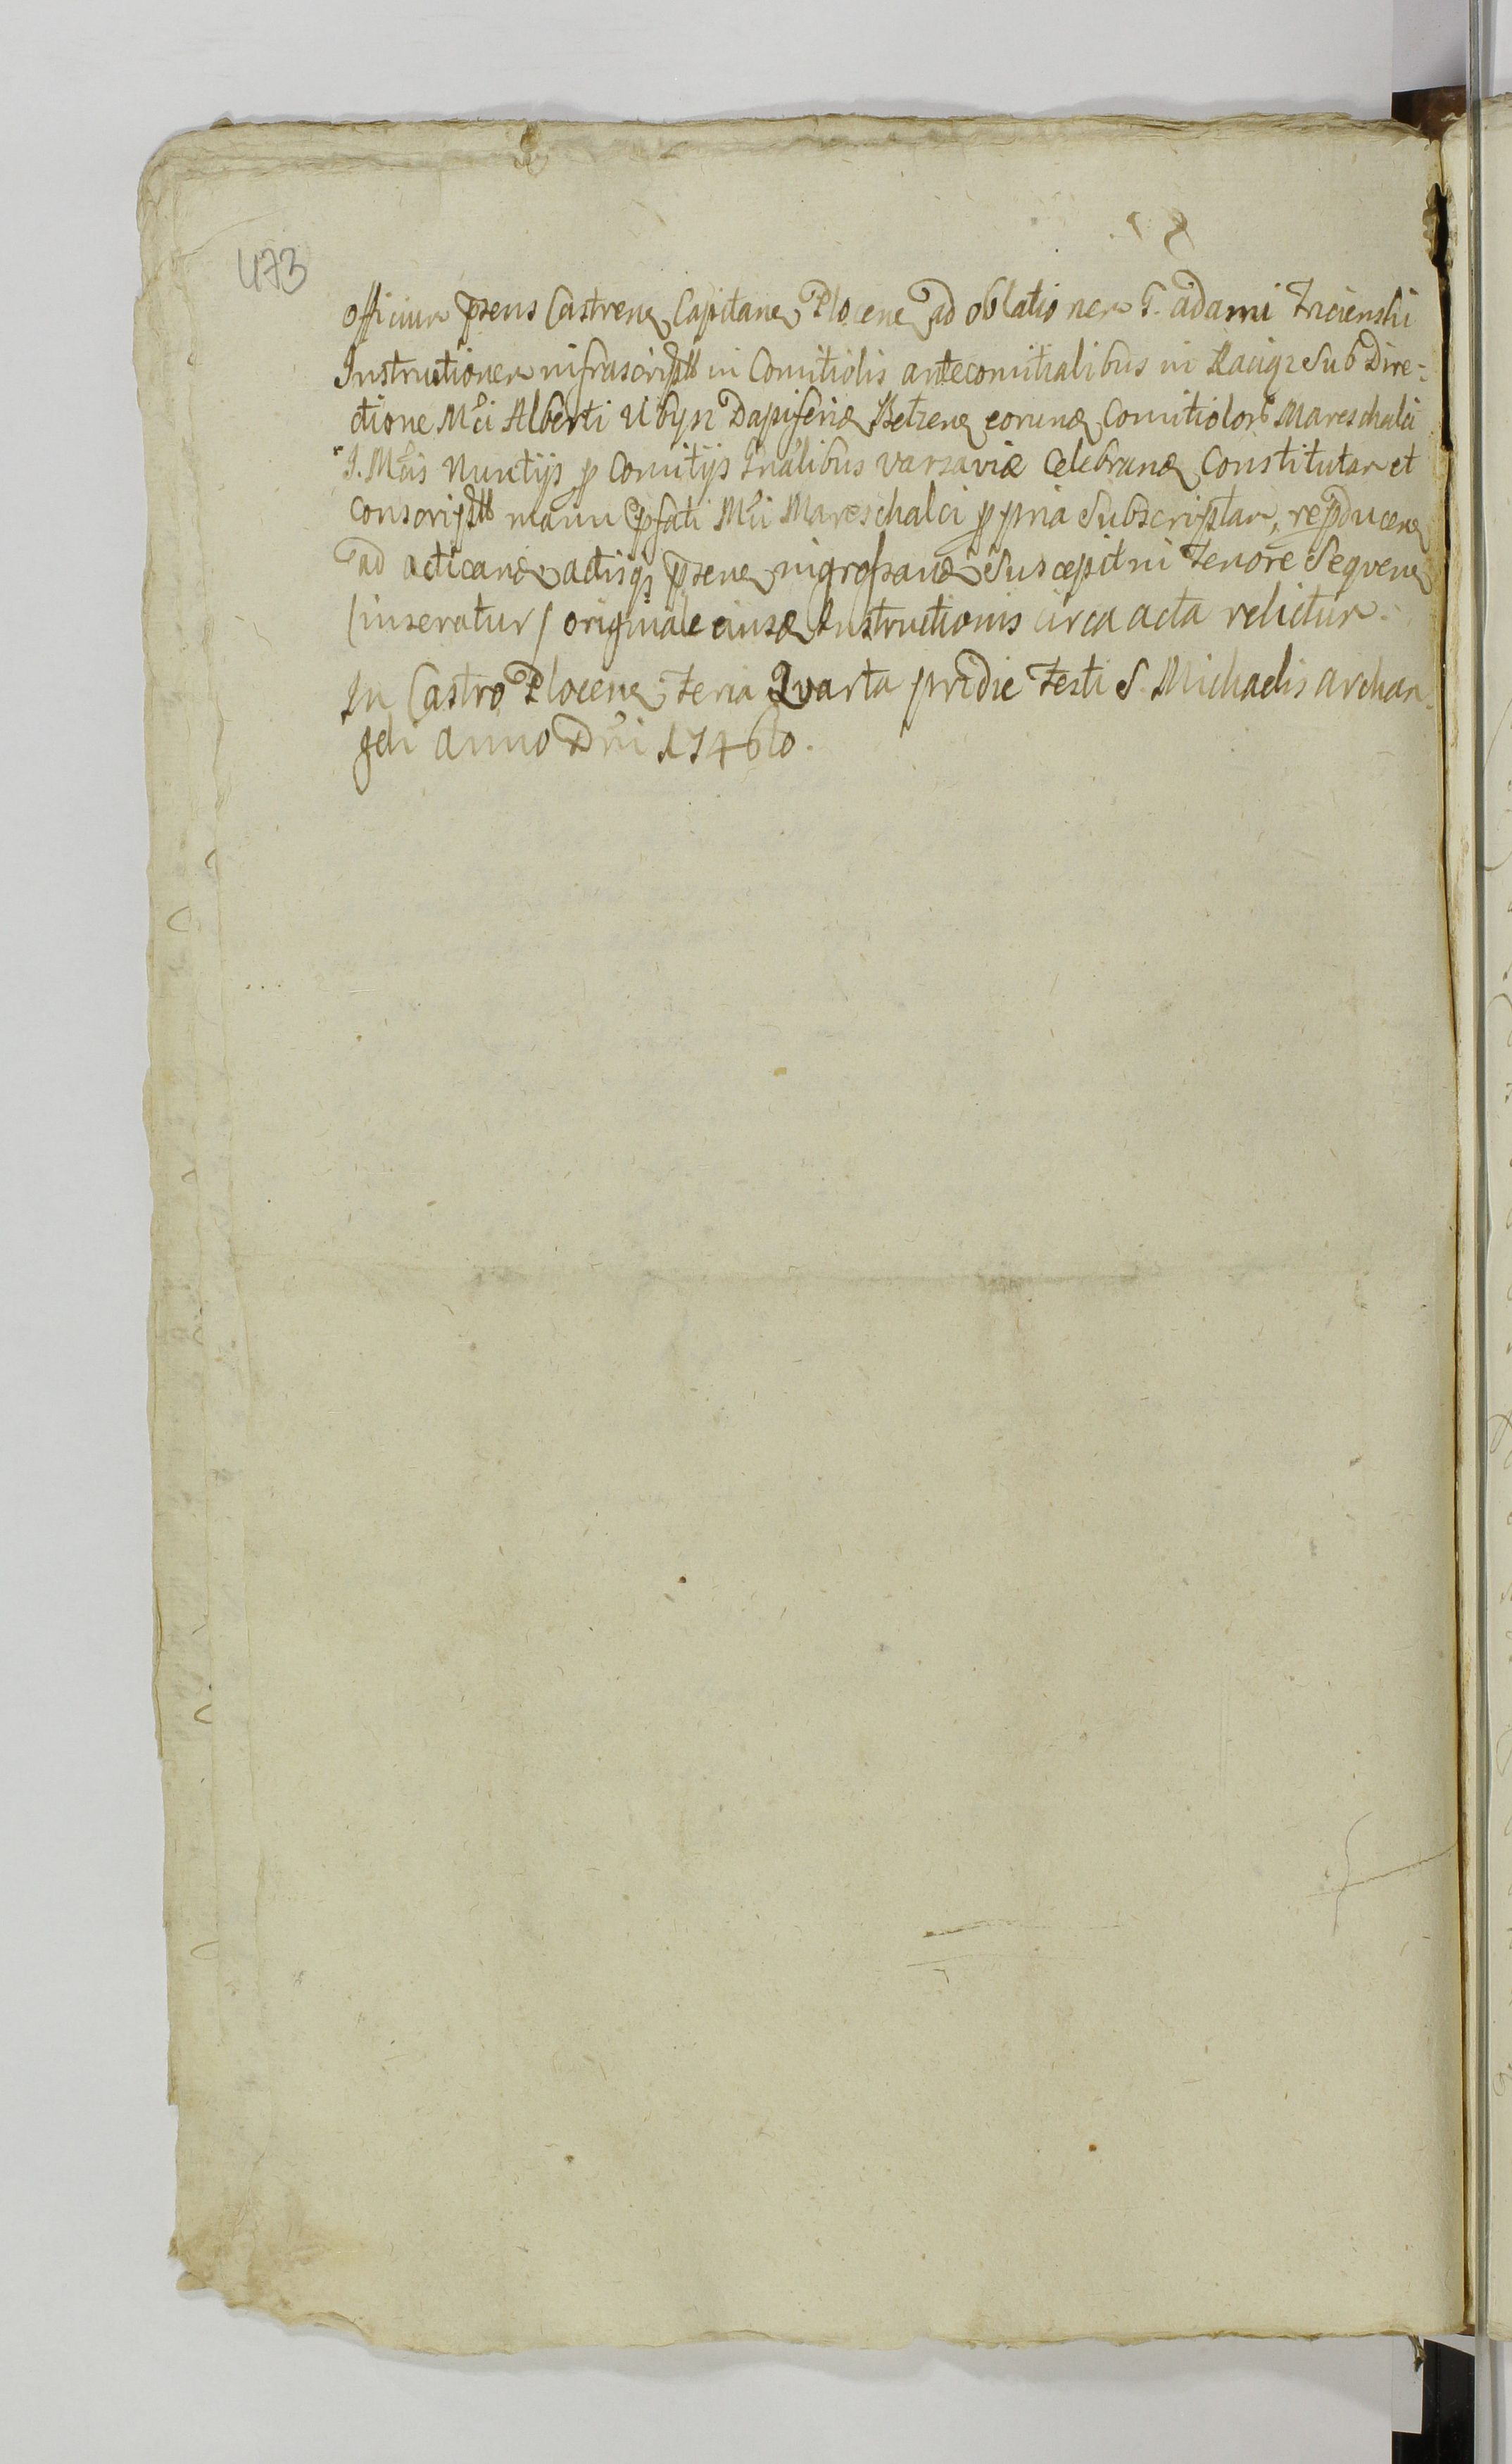 473
Officium prsens Castren Capitan Plocen ad oblationem G. Adami
Instructionem infrascriptt in Comitiolis antecomitialibus in Raciąz Sub Dire-
ctione Mci Alberti Ubysz Dapiferid Belzen eorund Comitiolor Mareschalci
J. Mcis Nuntijs p Comitijs Gnalibus Varsaviæ Celebrand Constitutam et
Conscriptt manu pfati Mci Mareschalci ppria Subscriptam, reproducen
ad acticand actisq prsen ingrossand Suscepit in Tenore Seqven
/inseratur/ originale eiusd Instructionis circa acta relictum.
In Castro Plocen Feria Qvarta pridie Festi S. Michaelis Archan-
geli Anno Dni 1746to.